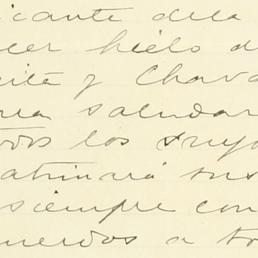 icante dela
cer hielo d
ita y Chava
ra saludar
odos los suyo
atrinará sus
siempre con
uerdos a to